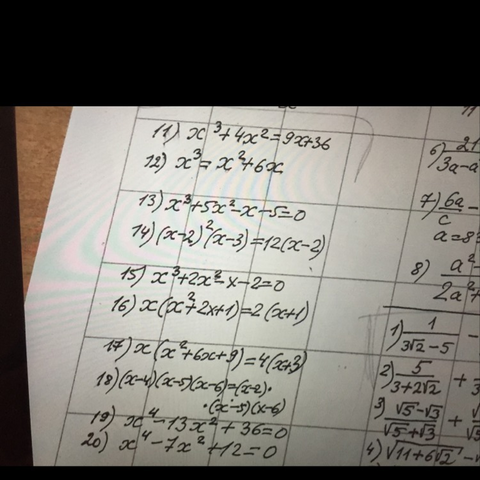 11) x³+4x²=9x+36
12) x³=x²+6x
13) x³+5x²-x-5=0
14) (x-2)²(x-3)=12(x-2)
15) x³+2x²-x-2=0
16) x(x²+2x+1)=2(x+1)
17) x(x²+6x+9)=4(x+3)
18) (x-4)(x-5)(x-6)=(x-2)·
·(x-5)(x-6)
19) x⁴-13x²+36=0
20) x⁴-7x²+12=0
6) 21
3a-a
7) 6a -
c
a=8
8) a²-
2a²+
1) 1 -
3√2-5
2) 5 +
3+2√2
3) √5-√3 +
√5+√3
4) √11+6√2 -